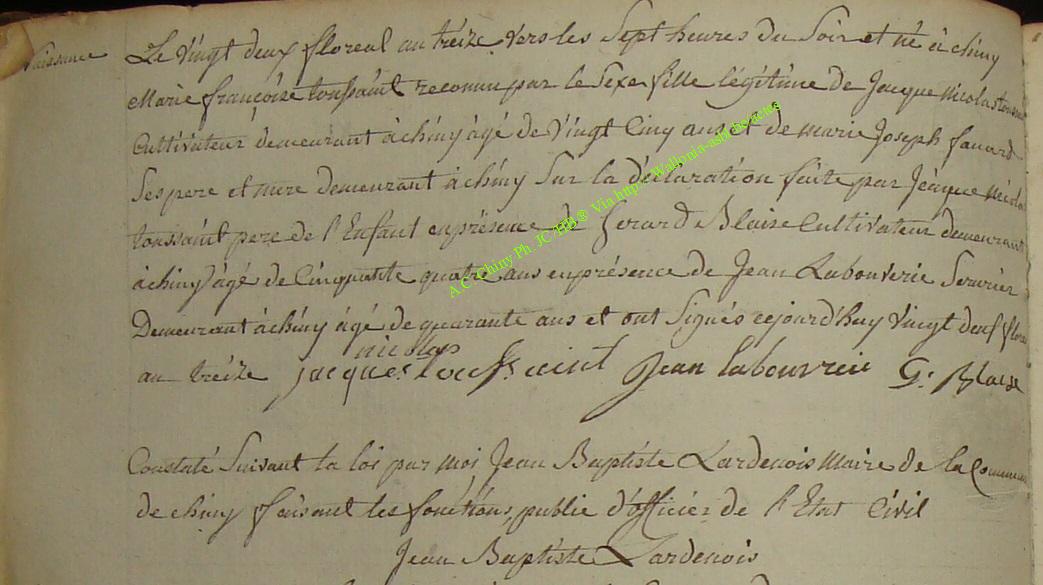 Naissance
Le vingt deux floreal an treize vers les Sept heures du Soir et né à chiny
Marie françoise toussaint reconnu par le Sexe fille légitime de Jacque Nicolas toussaint
Cultivateur demeurant à chiny âgé de vingt Cinq ans et de marie Joseph
Ses pere et mere demeurant à chiny Sur la déclaration faite par Jacque Nicolas
toussaint pere de l'Enfant en présence de Gerard Blaise Cultivateur demeurant
à chiny âgé de Cinquante quatre ans en présence de Jean Labouverie Serurier
Demeurant à chiny âgé de quarante ans et ont Signés cejourd'huy vingt deux floreal
nicolas
an treize jacques toussaint Jean labouvrie G. Blaise
Constaté Suivant la loi par moi Jean Baptiste Lardenois Maire de la Commune
de chiny faisant les fonctions public d'officier de l'Etat Civil
Jean Baptiste Lardenois
A.C. Chiny Ph. JC /HB® Via http://Wallonia-asbl.be